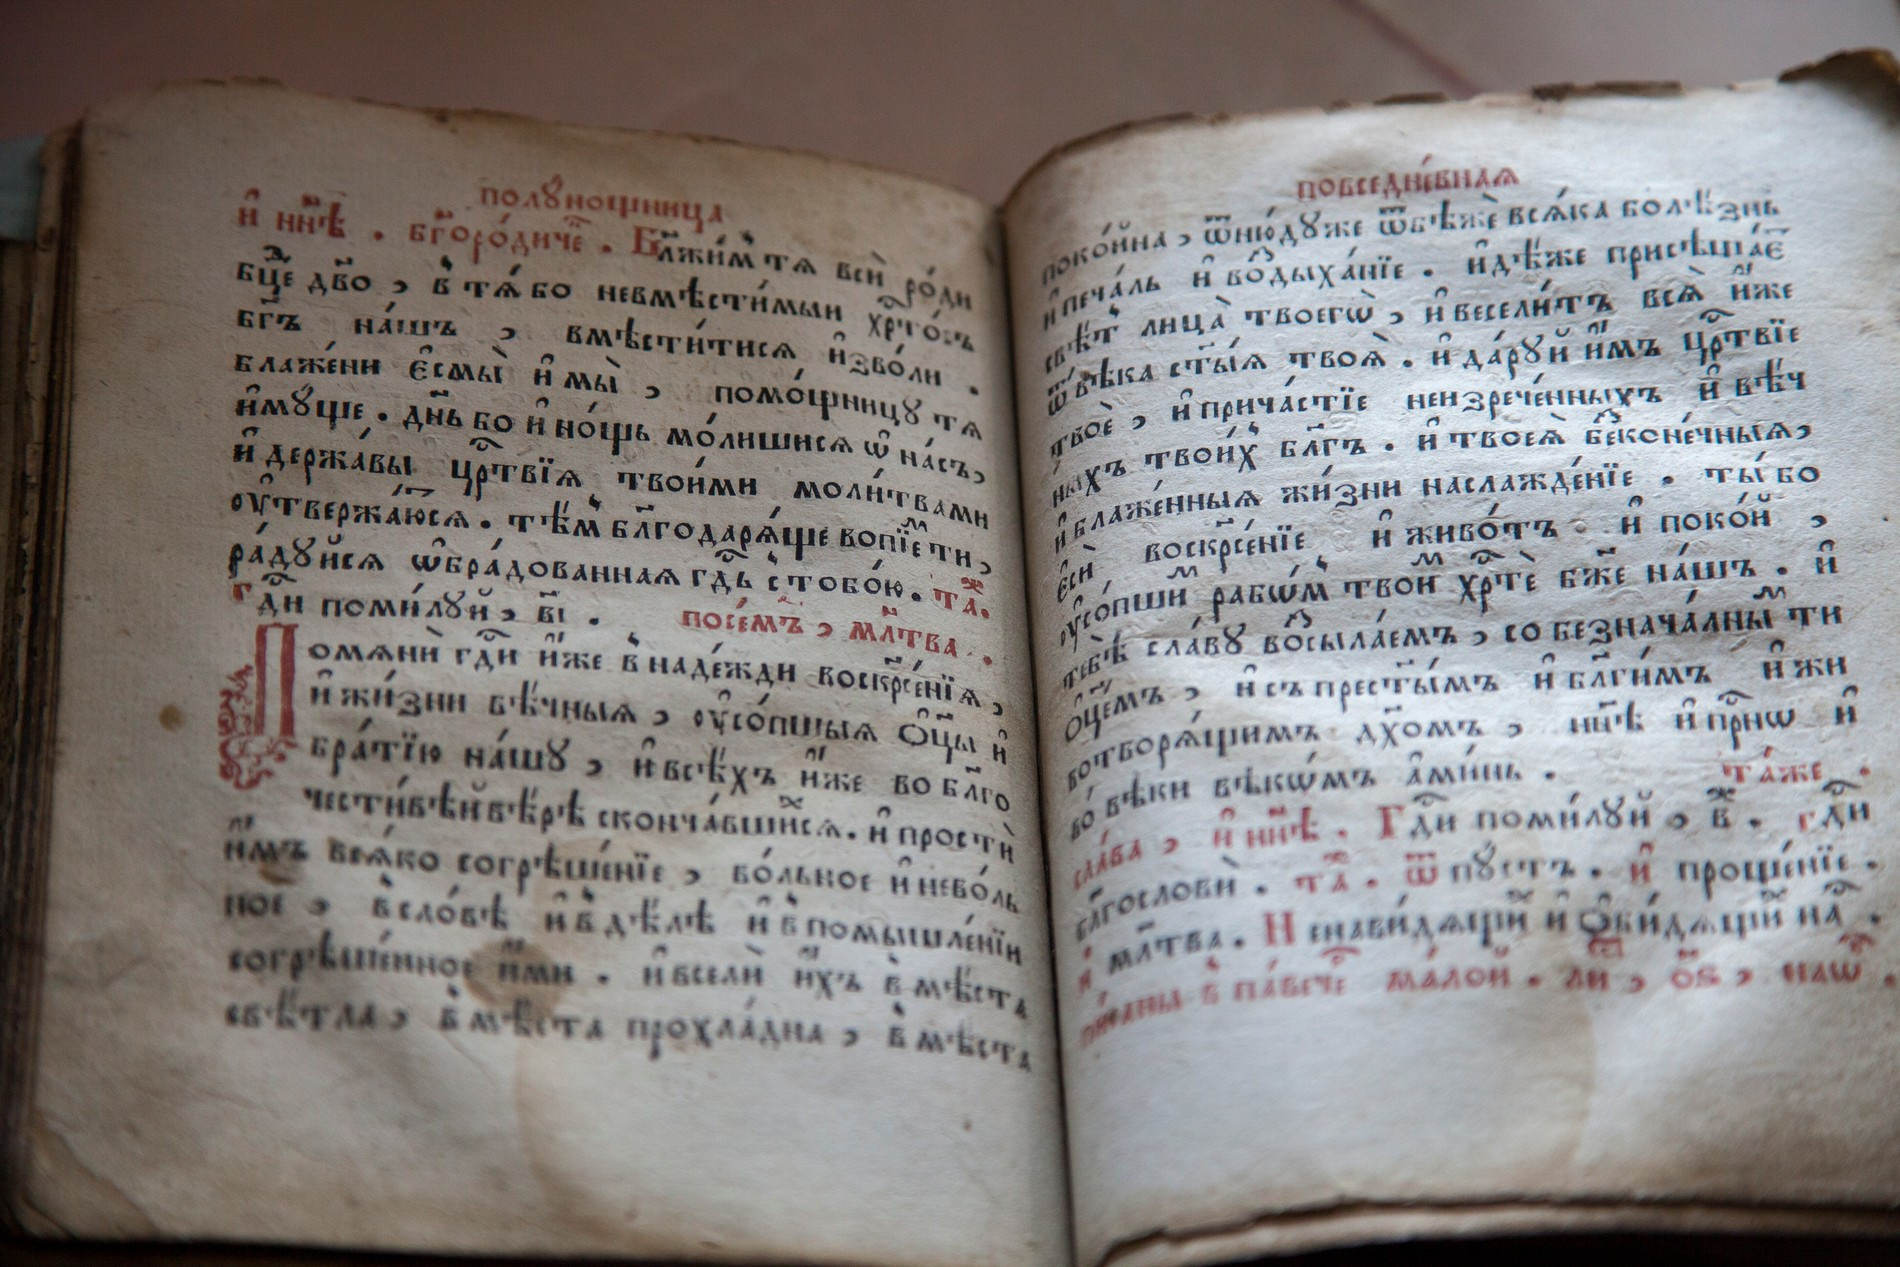 полꙋнощница
и҆ нн҃ѣ . бг҃оро́диче . Бл҃жи́м тѧ всѝ ро́ди
бц҃е дв҃о , в тѧ́ бо невмѣсти́мыи хрⷭ҇то́съ
бг҃ъ на́шъ , вмѣсти́тисѧ и҆зво́ли .
блаже́ни є҆смы̀ и҆ мы̀ , помо́щницꙋ тѧ
и҆мꙋ́ще . дн҃ь бо и҆ но́щь мо́лишисѧ ѡ҆ на́съ ,
и҆ держа́вы црⷭ҇твїѧ твои́ми моли́твами
ѹ҆твержа́юсѧ . тѣ́м бл҃годарѧ́ще вопїе́м ти ,
ра́дꙋйсѧ ѡ҆бра́дованнаѧ гдⷭ҇ь с тобо́ю . та́ж .
гдⷭ҇и поми́лꙋй , в҃і . посе́мъ , мл҃тва .
Помѧнѝ гдⷭ҇и и҆̀же в наде́жди воскрⷭ҇е́нїѧ ,
и҆ жи́зни вѣ́чныѧ , ѹ҆со́пшыѧ ѻ҆ц҃ы и҆
бра́тїю на́шꙋ , и҆ всѣ́хъ и҆̀же во бл҃го
чести́вѣй вѣ́рѣ сконча́вшихсѧ . и҆ простѝ
и҆̀мъ всѧ́ко согрѣше́нїе , во́льное и҆ нево́ль
ное , в сло́вѣ и҆ в дѣ́лѣ и҆ в помышле́нїи
согрѣше́нное и҆́ми . и҆ вселѝ и҆̀хъ в мѣ́ста
свѣ́тла , в мѣ́ста прохла́дна , в мѣ́ста
повседне́внаѧ
поко́йна , ѿню́дꙋже ѿбѣжѐ всѧ́ка болѣ́знь
и҆ печа́ль и҆ воздыха́нїе . и҆дѣ́же присѣща́ет
свѣ́т лица̀ твоегѡ̀ , и҆ весели́тъ всѧ̀ и҆̀же
ѿ вѣ́ка ст҃ы́ѧ твоѧ̀ . и҆ да́рꙋй и҆̀мъ црⷭ҇твїе
твоѐ , и҆ прича́стїе неизрече́нныхъ и҆ вѣ́ч
ныхъ твои́х бл҃гъ . и҆ твоеѧ̀ безконе́чныѧ ,
и҆ блаже́нныѧ жи́зни наслажде́нїе . ты́ бо
є҆сѝ воскрⷭ҇е́нїе и҆ живо́тъ . и҆ поко́й ,
ѹ҆со́пшим рабѡ́м твоим хрⷭ҇тѐ бж҃е на́шъ . и҆
тебѣ̀ сла́вꙋ возсыла́емъ , со безнача́лным ти
ѻ҆ц҃е́мъ , и҆ съ прест҃ы́мъ и҆ бл҃ги́мъ и҆ жи
вотворѧ́щимъ дх҃омъ , нн҃ѣ и҆ прⷭ҇нѡ и҆
во́ вѣки вѣкѡ́мъ а҆ми́нь . та́же .
сла́ва , и҆ нн҃ѣ . Гдⷭ҇и поми́лꙋй , в҃ж . гдⷭ҇и
бл҃гословѝ . та́ж . ѿпꙋстъ . и҆ проще́нїе .
и҆ мл҃тва . Ненави́дѧщих и҆ ѻ҆би́дѧщих на́с .
пи́саны в па́вече́ мало́й . ли ,